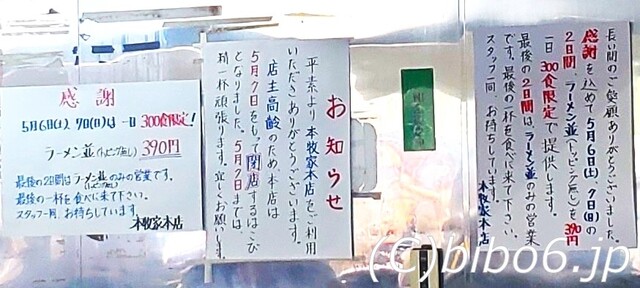 感謝
5月6日(土)、7日(日)は一日300食限定!
ラーメン並(トッピング無し)390円
最後の2日間はラーメン並のみの営業です。
(トッピング無し)
最後の一杯を食べに来て下さい。
スタッフ一同、お待ちしています。
本牧家本店
お知らせ
平素より本牧家本店をご利用
いただきありがとうございます。
店主高齢のため本店は
5月7日をもって閉店するはこび
となりました。5月7日までは
精一杯頑張ります。宜しくお願いします。
長い間のご愛顧ありがとうございました。
感謝を込めて5月6日(土)7日(日)の
2日間、ラーメン並(トッピング無し)を390円
一日300食限定で提供します。
最後の2日間はラーメン並のみの営業
です。最後の一杯を食べに来て下さい。
スタッフ一同、お待ちしています。
本牧家本店
(C)bibo6.jp